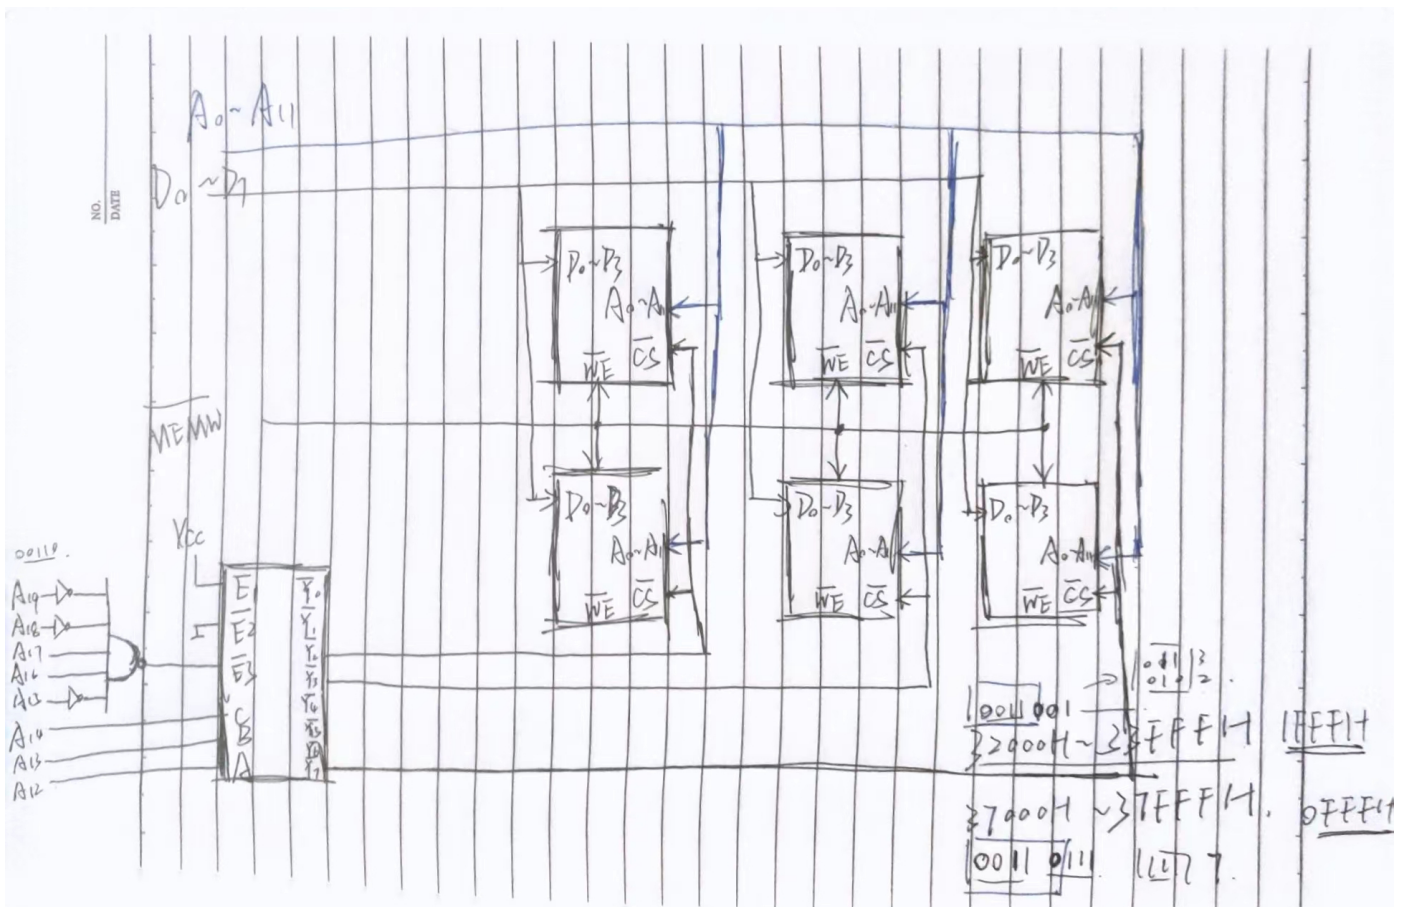 A0~A11
NO.
DATE
D0~D7
D0~D3
A0~A11
WE
CS
D0~D3
A0~A11
WE
CS
D0~D3
A0~A11
WE
CS
MEMW
D0~D3
A0~A1
WE
CS
D0~D3
A0~A11
WE
CS
D0~D3
A0~A11
WE
CS
Vcc
00110.
A19
A18
A17
A16
A15
A14
A13
A12
E1
E2
E3
C
B
A
Y0
Y1
Y2
Y3
Y4
Y5
Y6
Y7
0011 3
0010 2.
0011 001
32000H~33FFFH 1FFFH
37000H~37FFFH. 0FFFH
0011 0111 111 7.